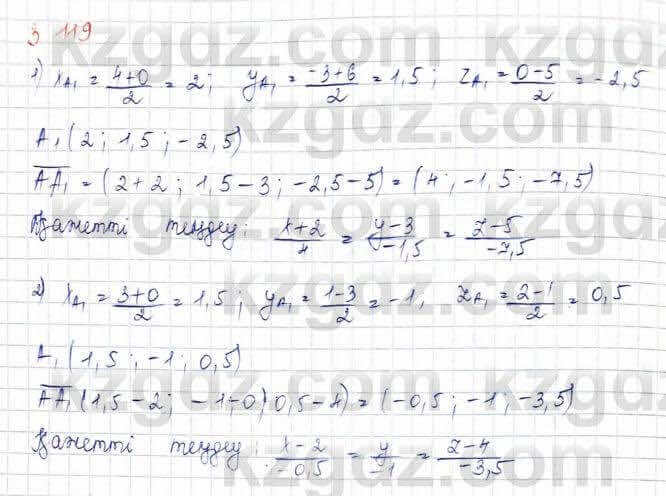 3 119
1) x_A₁ = (4+0)/2 = 2; y_A₁ = (-3+6)/2 = 1,5; z_A₁ = (0-5)/2 = -2,5
A₁(2; 1,5; -2,5)
AA₁ = (2+2; 1,5-3; -2,5-5) = (4; -1,5; -7,5)
Қажетті теңдеу: (x+2)/4 = (y-3)/(-1,5) = (z-5)/(-7,5)
2) x_A₁ = (3+0)/2 = 1,5; y_A₁ = (1-3)/2 = -1, z_A₁ = (2-1)/2 = 0,5
A₁(1,5; -1; 0,5)
AA₁(1,5-2; -1-0; 0,5-4) = (-0,5; -1; -3,5)
Қажетті теңдеу: (x-2)/(-0,5) = y/(-1) = (z-4)/(-3,5)
kzgdz.com
kzgdz.com
kzgdz.com
kzgdz.com
kzgdz.com